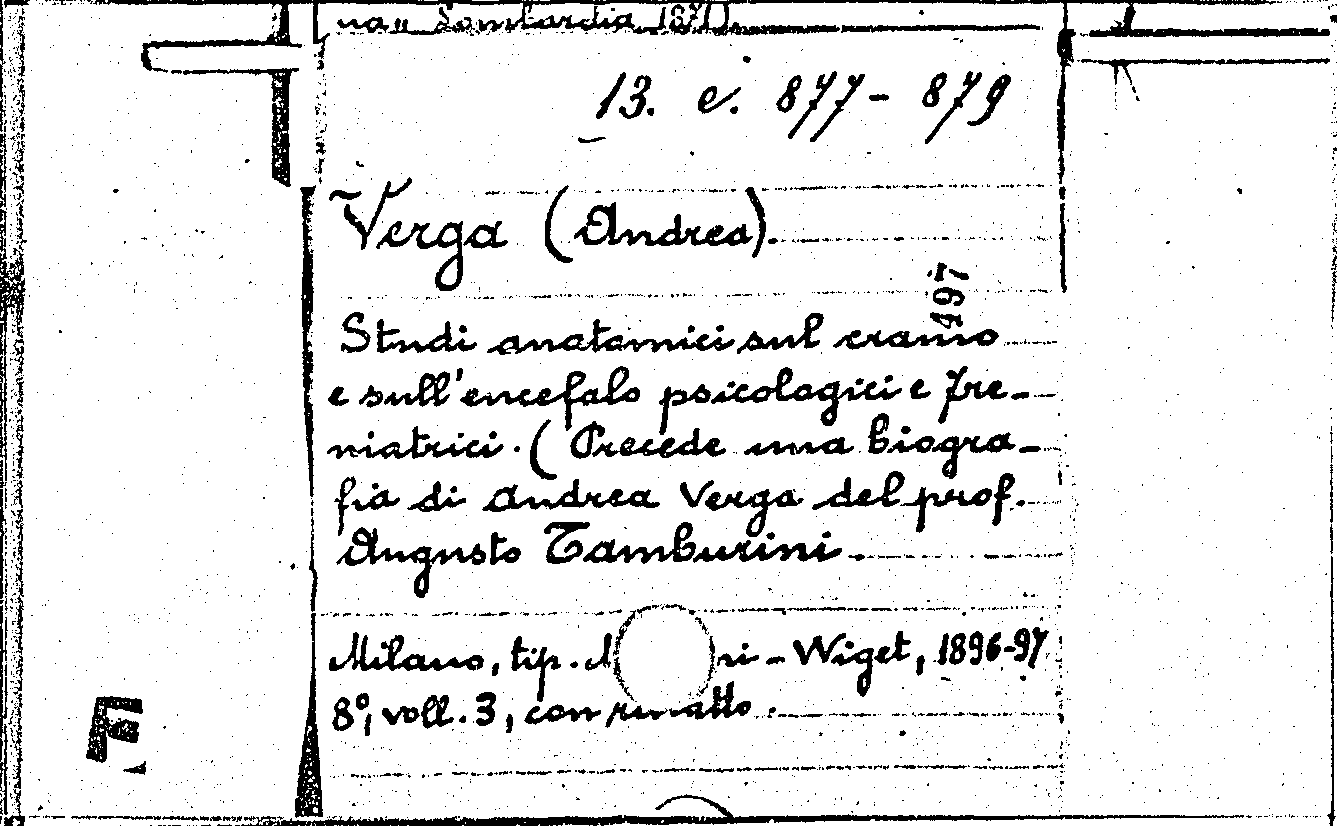 na" Lombardia 1871).
13. c. 877-879
Verga (Andrea).
497
Studi anatomici sul cranio
e sull'encefalo psicologici e fre-
niatrici. (Precede una biogra-
fia di Andrea Verga del prof.
Augusto Tamburini.
Milano, tip. M ni-Wiget, 1896-97
8°, voll. 3, con ritratto.
F